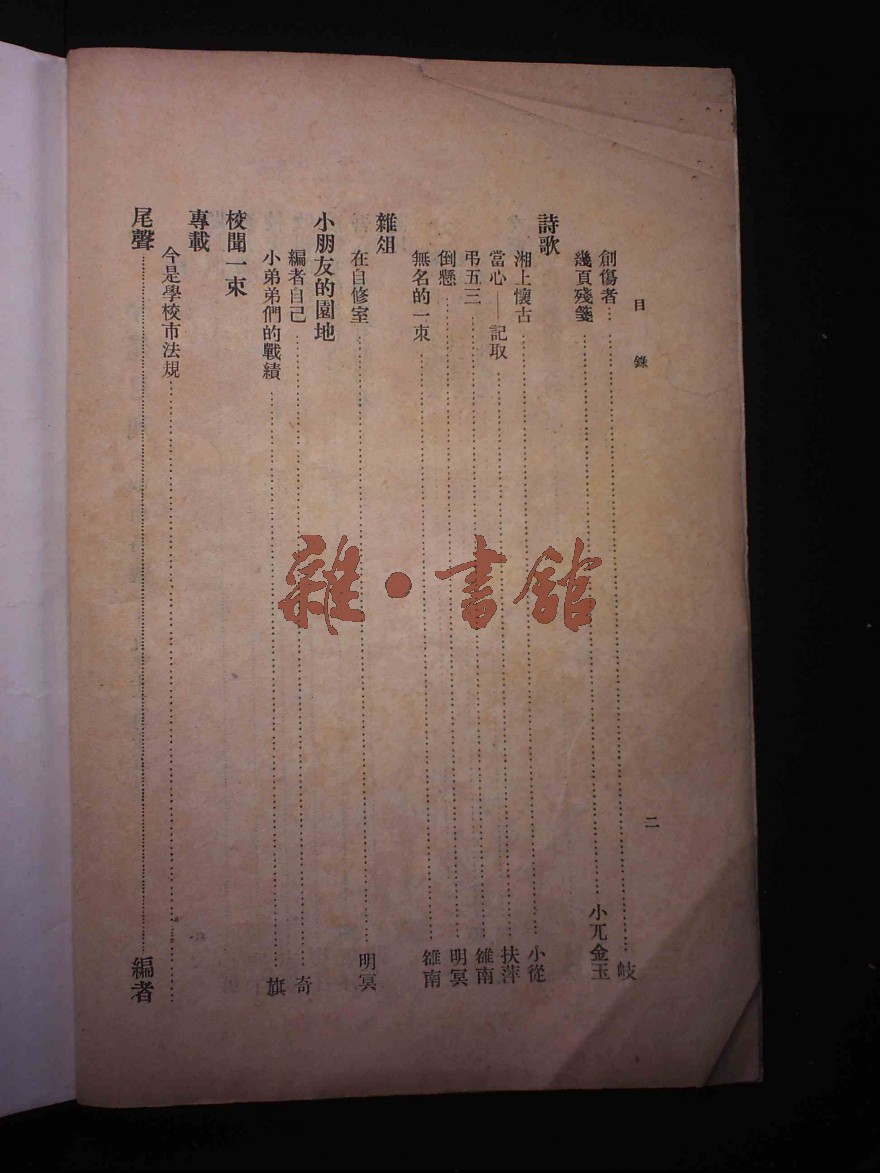 目錄
二
創傷者……岐
幾頁殘箋……小兀金玉
詩歌
湘上懷古……小從
當心——記取……扶萍
弔五三……雒南
倒懸……明冥
無名的一束……雒南
雜俎
在自修室……明冥
小朋友的園地
編者自己……奇
小弟弟們的戰績……旗
校聞一束
專載
今是學校市法規……
尾聲……編者
雜·書館